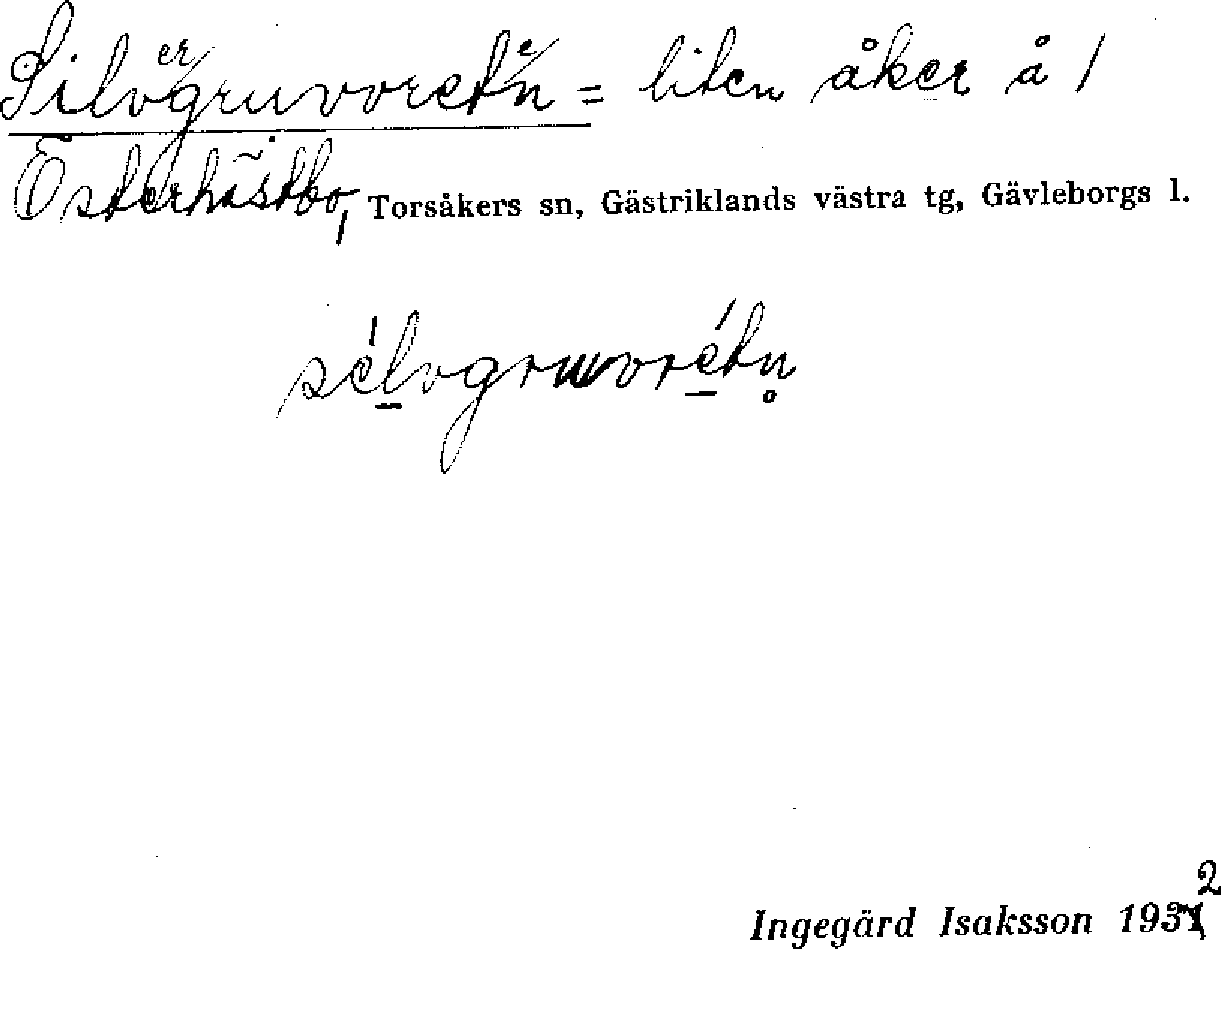 Silvergruvoreten = liten åker å 1
Österhästbo, Torsåkers sn, Gästriklands västra tg, Gävleborgs l.
sélvgruvorétn̥
Ingegärd Isaksson 1932